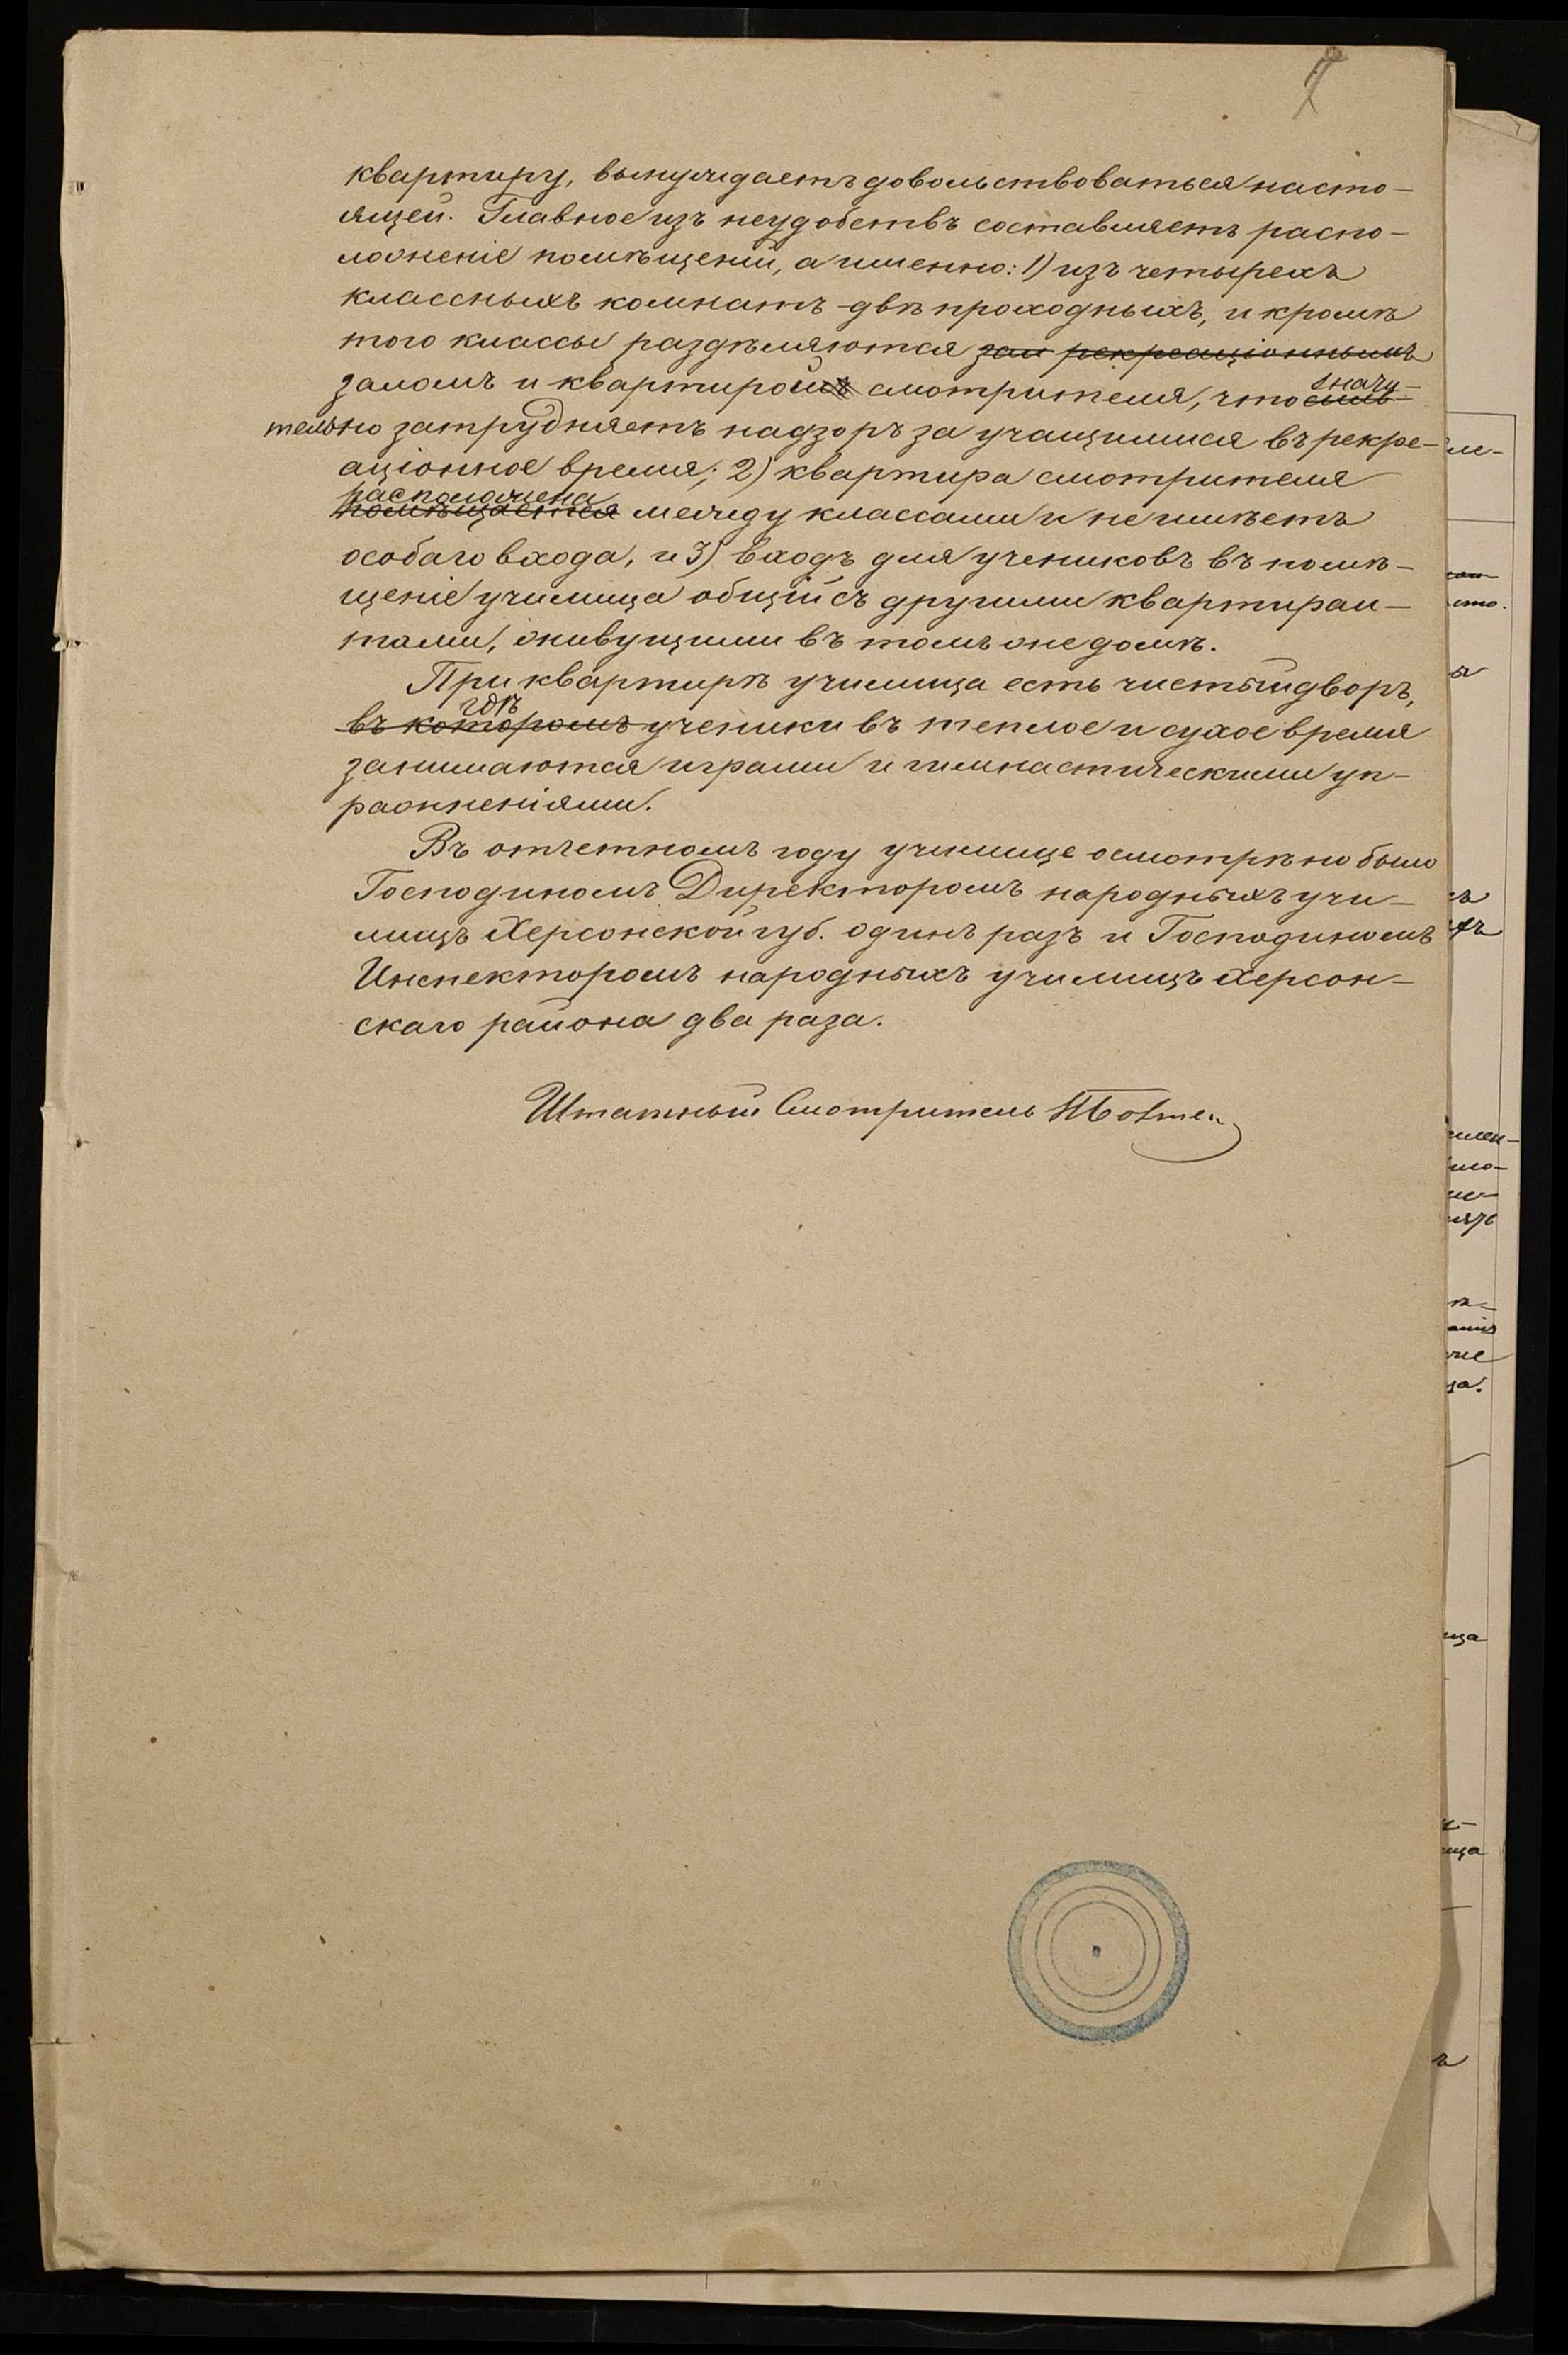 квартиру, вынуждаетъ довольствоваться насто-
ящей. Главное изъ неудобствъ составляетъ распо-
ложеніе помѣщеній, а именно: 1) изъ четырехъ
классныхъ комнатъ двѣ проходныхъ, и кромѣ
того классы раздѣляются зал рекреаціоннымъ
заломъ и квартирой смотрителя, что значи-
тельно затрудняетъ надзоръ за учащимися въ рекре-
аціонное время; 2) квартира смотрителя
расположена
помѣщается между классами и не имѣетъ
особаго входа, и 3) входъ для учениковъ въ помѣ-
щеніе училища общій съ другими квартиран-
тами, живущими въ томъ же домѣ.
При квартирѣ училища есть чистый дворъ,
гдѣ
въ которомъ ученики въ теплое и сухое время
занимаются играми и гимнастическими уп-
ражненіями.
Въ отчетномъ году училище осмотрѣно было
Господиномъ Директоромъ народныхъ учи-
лищъ Херсонской губ. одинъ разъ и Господиномъ
Инспекторомъ народныхъ училищъ Херсон-
скаго района два раза.
Штатный Смотритель